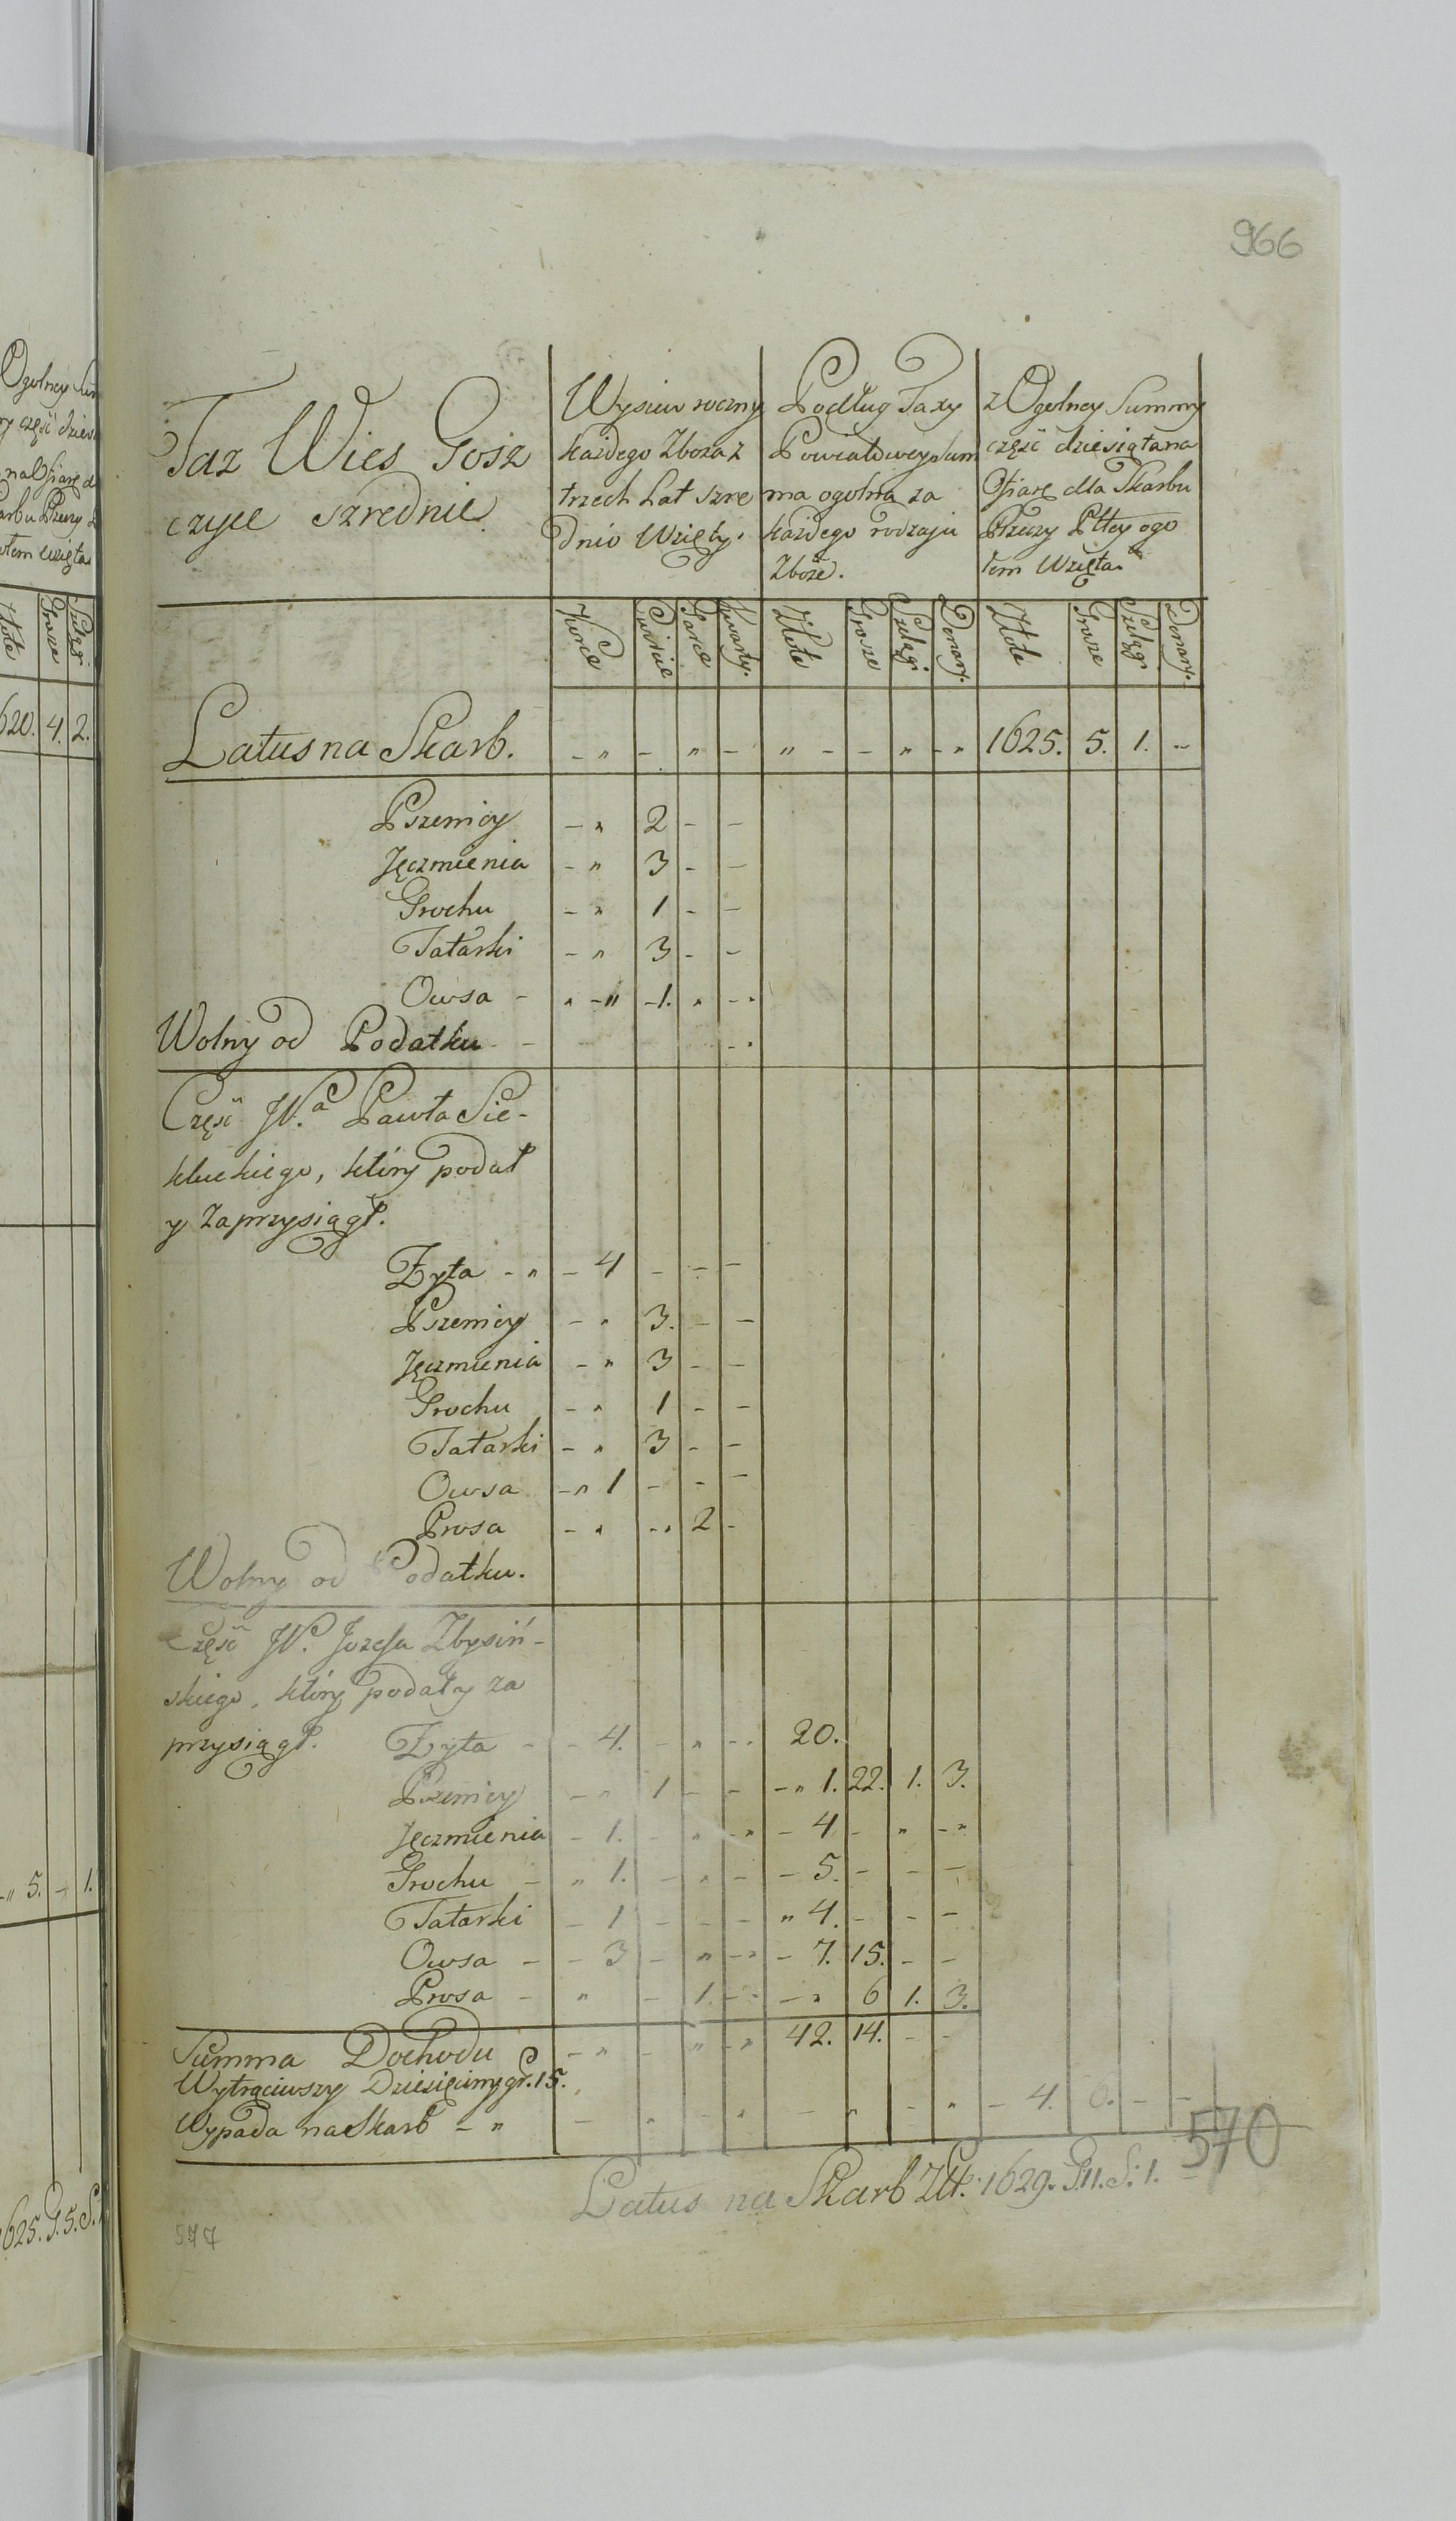 966
Taz Wies Gosz
czyce szrednie
Wysiew roczny
każdego Zboza z
trzech Lat szre
dnio Wzięty.
Podług Taxy
Powiatowey Sum
ma ogolna za
każdego rodzaju
Zboże.
z Ogolney Summy
część dziesiąta na
Ofiarę dla Skarbu
Rzeczy Pltey ogo
łem Wzięta.
Korce Cwircie Garce Kwarty. Złote Grosze Szelągi Denary. Złote Grosze Szelągi Denary.
Latus na Skarb. - " - " - " - - " - " 1625. 5. 1. -
Pszenicy - " 2 - -
Jęczmienia - " 3 - -
Grochu - " 1 - -
Tatarki - " 3 - -
Owsa - " - " - 1. " - "
Wolny od Podatku - -
Część JW.a Pawła Sie-
kluckiego, który podał
y zaprzysiągł.
Żyta - " - 4 - - -
Pszenicy - " 3. - -
Jęczmienia - " 3 - -
Grochu - " 1 - -
Tatarki - " 3 - -
Owsa - " 1 - - -
Prosa - " - " 2 -
Wolny od Podatku.
Część JW. Jozefa Zbysiń-
skiego, który podał y za
przysiągł. Żyta - - 4. - " - - 20.
Pszenicy - " 1 - - - " 1. 22. 1. 3.
Jęczmienia - 1. - " - " - 4 - " - "
Grochu - " 1. - " - - 5. - - -
Tatarki - 1 - - - " 4. - - -
Owsa - - 3 - " - " - 7. 15. - -
Prosa - " - 1. - - - " 6 1. 3.
Summa Dochodu - " - " - " 42. 14. - -
Wytrąciwszy Dziesięciny gr. 15.
Wypada na Skarb - " - " - " - " - " - 4. 6. - -
570
Latus na Skarb Zł. 1629. G. 11. S. 1.
577
Ogolney Sum
część dzies
na Ofiarę d
Złote Grosze Szelągi
620. 4. 2.
- " 5. - 1.
1625. G. 5. S.